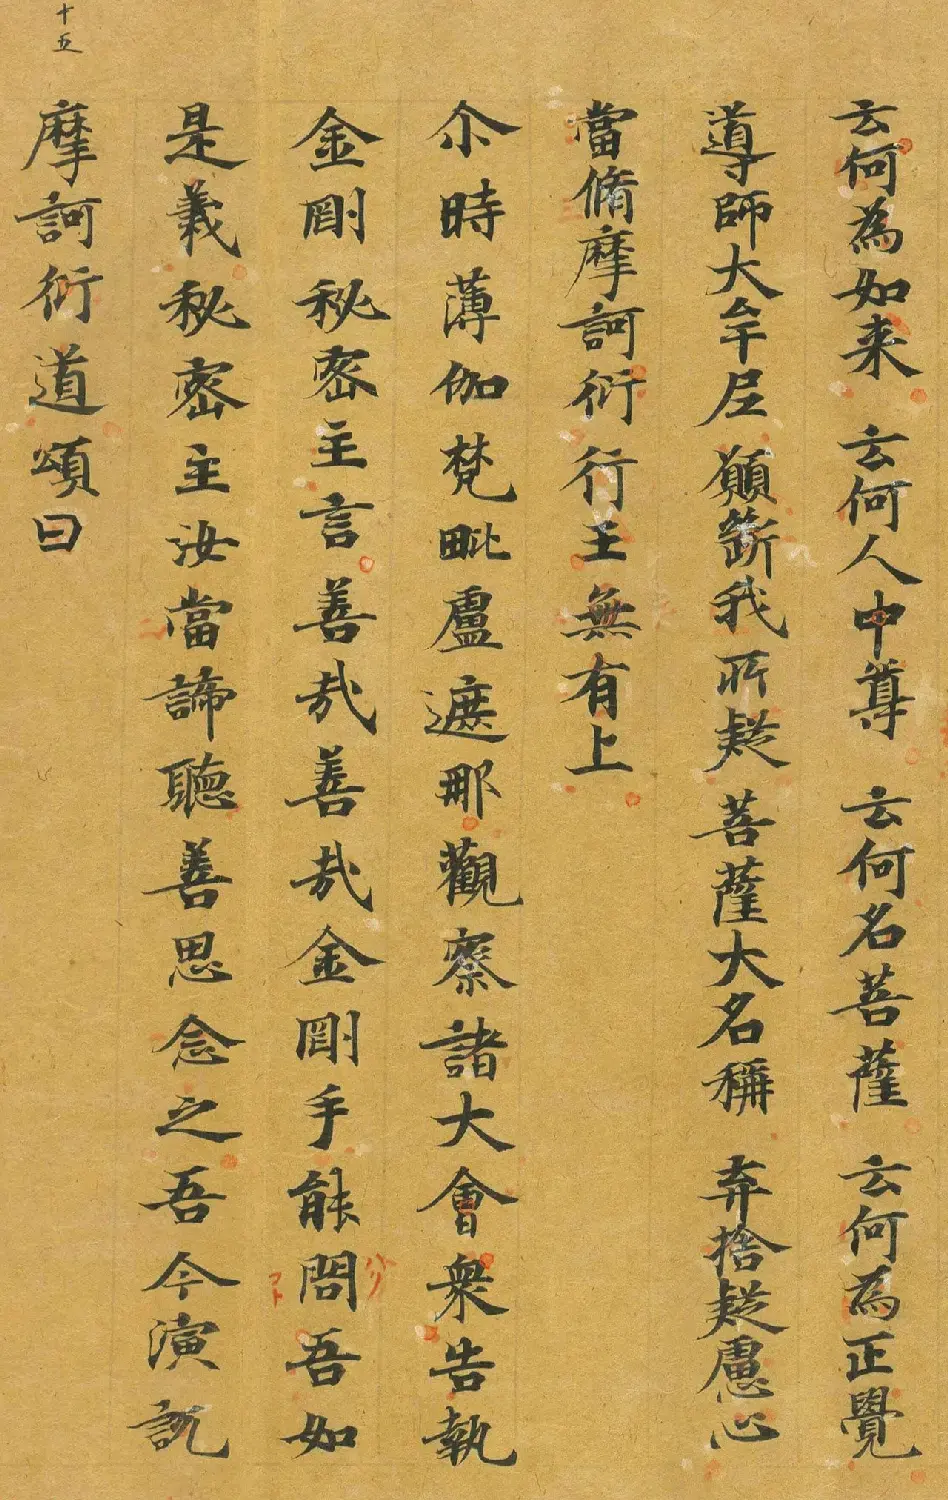 十五
云何為如来 云何人中尊 云何名菩薩 云何為正覺
導師大牟尼 願斷我所疑 菩薩大名稱 弃捨疑慮心
當脩摩訶衍 行王無有上
尒時薄伽梵毗盧遮那觀察諸大會衆告執
金剛秘密主言善哉善哉金剛手能問吾如
是義秘密主汝當諦聽善思念之吾今演說
摩訶衍道頌曰